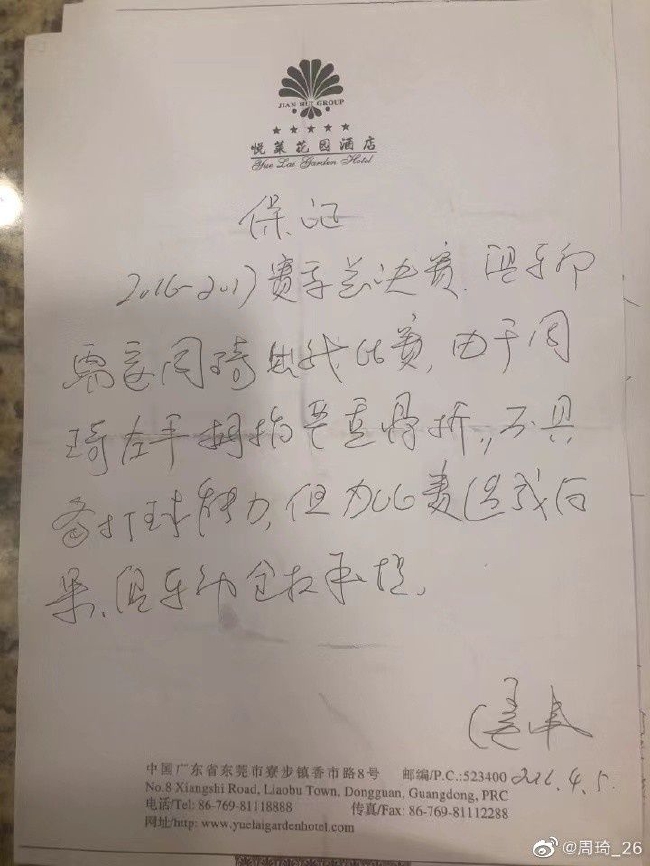 JIAN HUI GROUP
★ ★ ★ ★ ★
悦莱花园酒店
Yue Lai Garden Hotel
保证
2016-2017赛季总决赛.俱乐部
需要周琦出战比赛,由于周
琦左手拇指严重骨折,不具
备打球能力,但为比赛造成后
果,俱乐部全权承担。
中国广东省东莞市寮步镇香市路8号 邮编/P.C.:523400
No.8 Xiangshi Road, Liaobu Town, Dongguan, Guangdong, PRC
电话/Tel: 86-769-81118888 传真/Fax: 86-769-81112288
网址/http: www.yuelaigardenhotel.com
@周琦_26